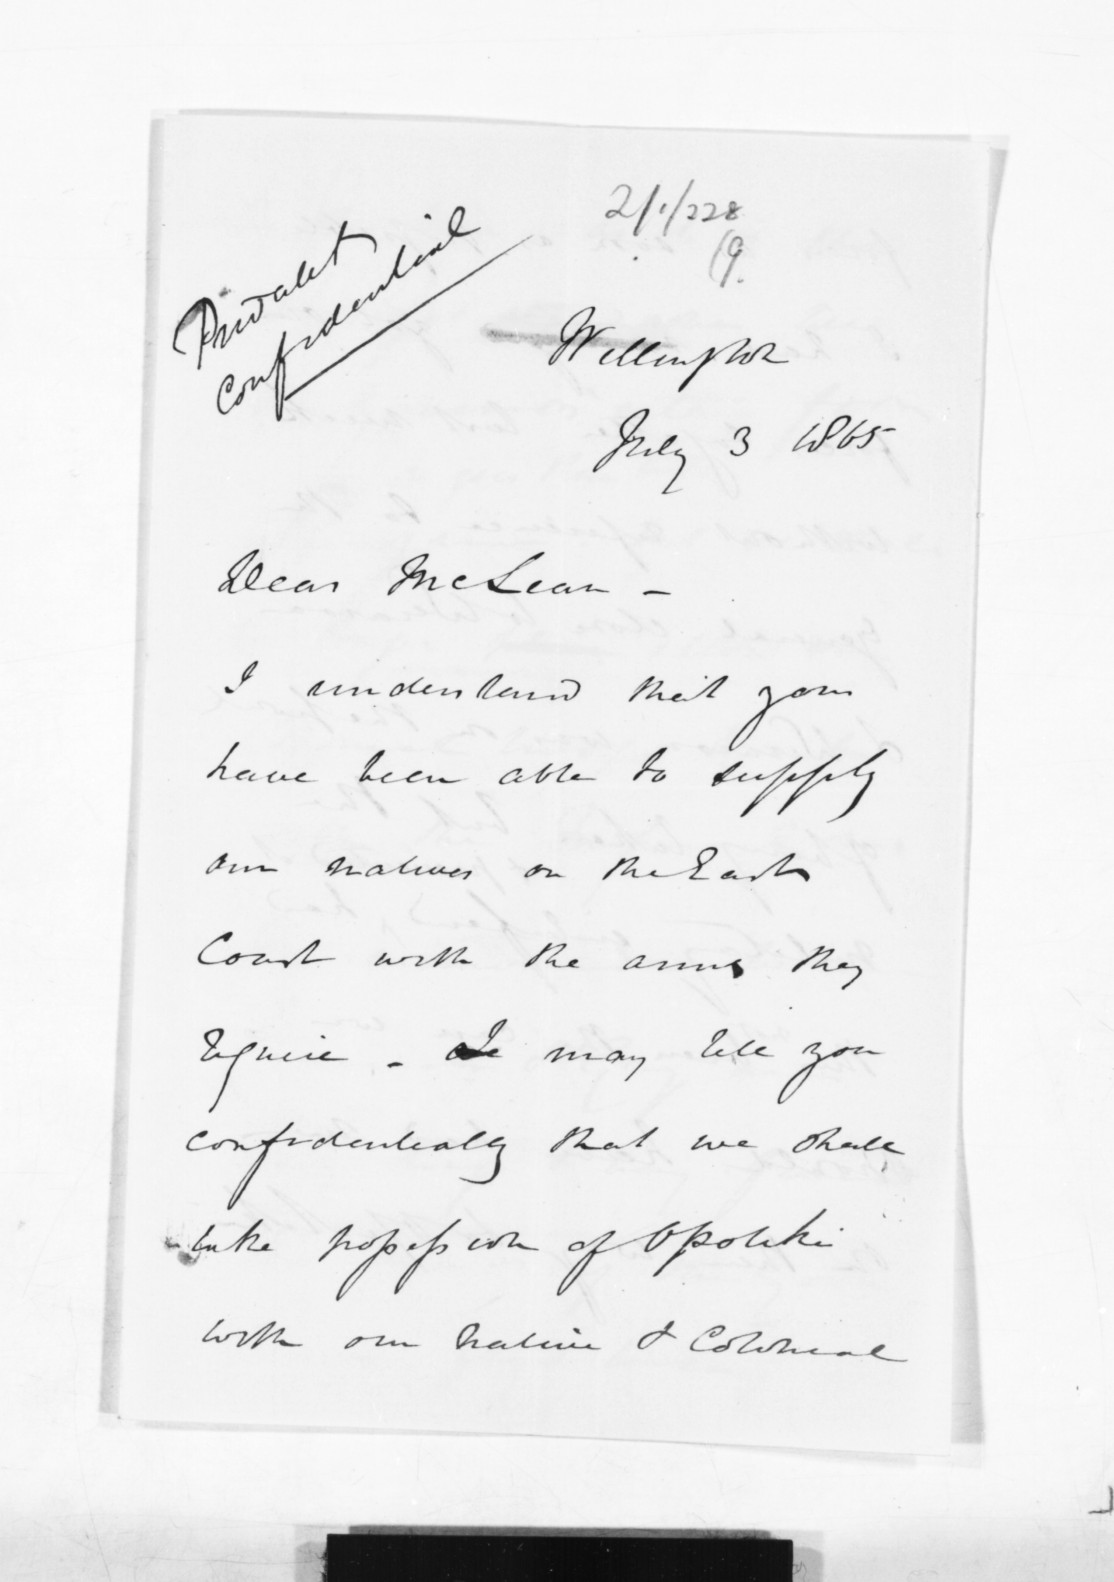 2/1/228
(9.
Private &
Confidential
Wellington
July 3 1865
Dear McLean -
I understand that you
have been able to supply
our natives on the East
Coast with the arms they
require - I may tell you
confidentially that we shall
take possession of Opotiki
with our native & Colonial